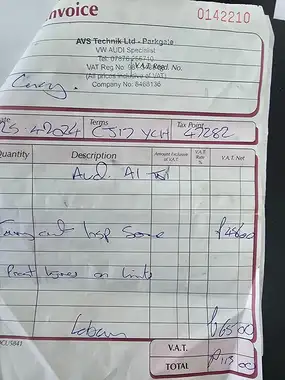 Invoice
0142210
AVS Technik Ltd - Parkgate
VW AUDI Specialist
Tel: 07876 256710
VAT Regd. No.
VAT Reg No
(All prices inclusive of VAT)
Company No: 8468136
25.4.2024 Terms CJ17 YCH Tax Point 47282
Quantity Description Amount Exclusive of V.A.T. V.A.T. Rate % V.A.T. Net
Audi A1
Carry out Insp Some £48.00
Front on
Labour £65.00
V.A.T.
TOTAL £113.00